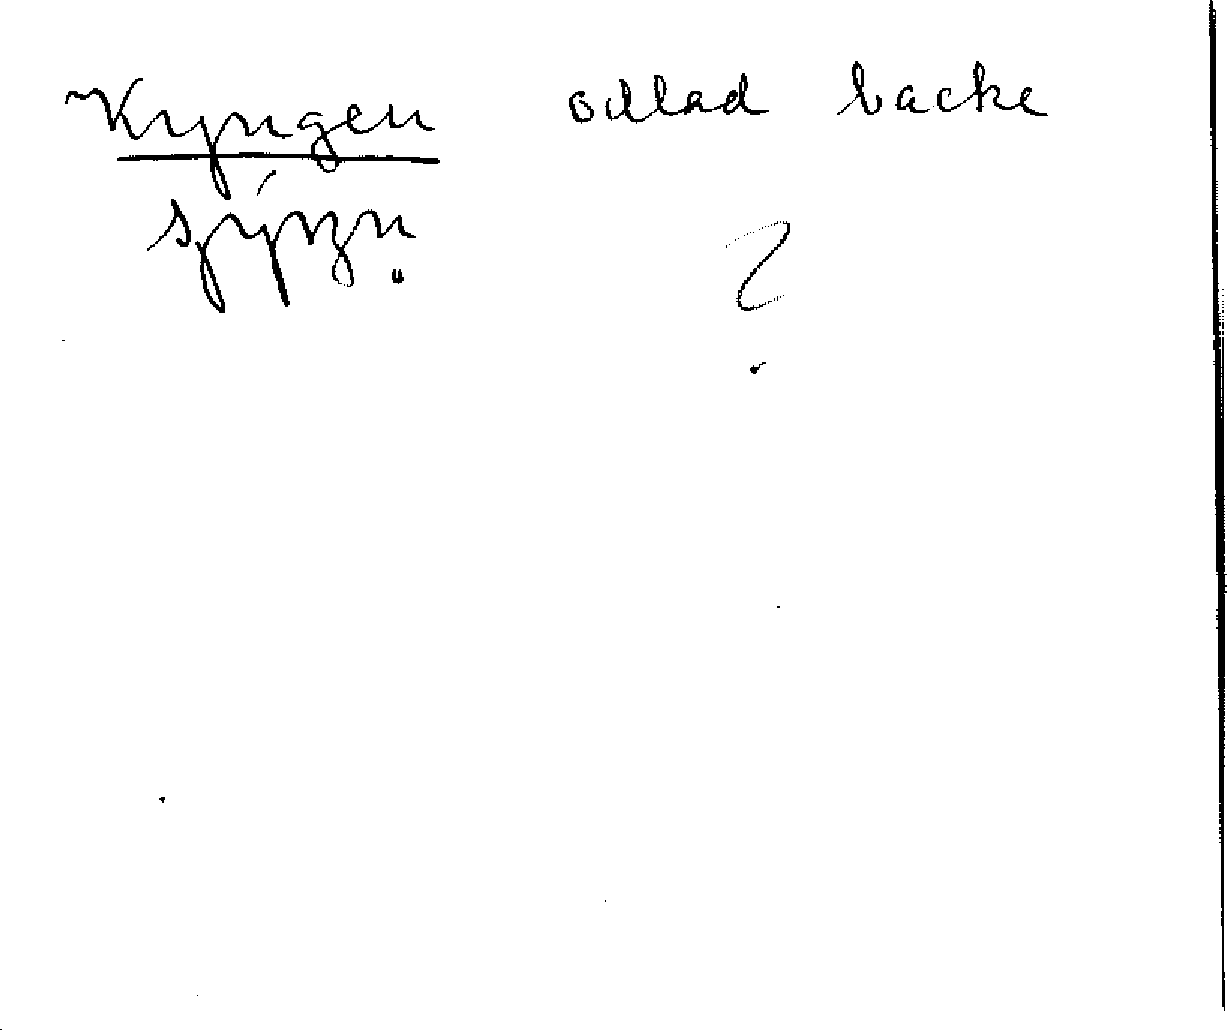 Kyngen odlad backe
?